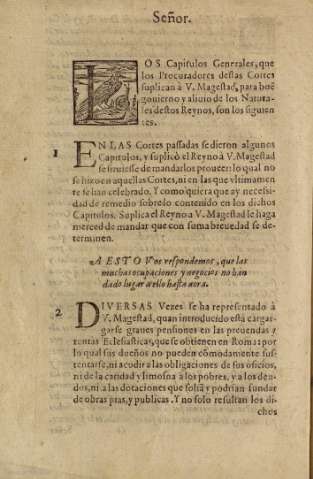 Señor.
LOS Capitulos Generales, que
los Procuradores destas Cortes
suplican à V. Magestad, para bué
gouierno y aliuio de los Natura-
les destos Reynos, son los siguien
tes.
1
EN LAS Cortes passadas se dieron algunos
Capitulos, y suplicò el Reyno à V. Magestad
se siruiesse de mandarlos proueer: lo qual no
se hizo en aquellas Cortes, ni en las que vltimamen
te se han celebrado. Y como quiera que ay necessi-
dad de remedio sobre lo contenido en los dichos
Capitulos. Suplica el Reyno a V. Magestad le haga
merced de mandar que con suma breuedad se de-
terminen.
A ESTO Vos respondemos, que las
muchas ocupaciones y negocios no han
dado lugar a ello hasta aora.
2
DIVERSAS Vezes se ha representado à
V. Magestad, quan introducido està cargar-
garse graues pensiones en las preuendas y
rentas Eclesiasticas, que se obtienen en Roma: por
lo qual sus dueños no pueden cómodamente sus-
tentarse, ni acudir a las obligaciones de sus oficios,
ni de la caridad y limosna a los pobres, y a los deu-
dos, ni a las dotaciones que solià y podrian fundar
de obras pias, y publicas. Y no solo resultan los di-
chos